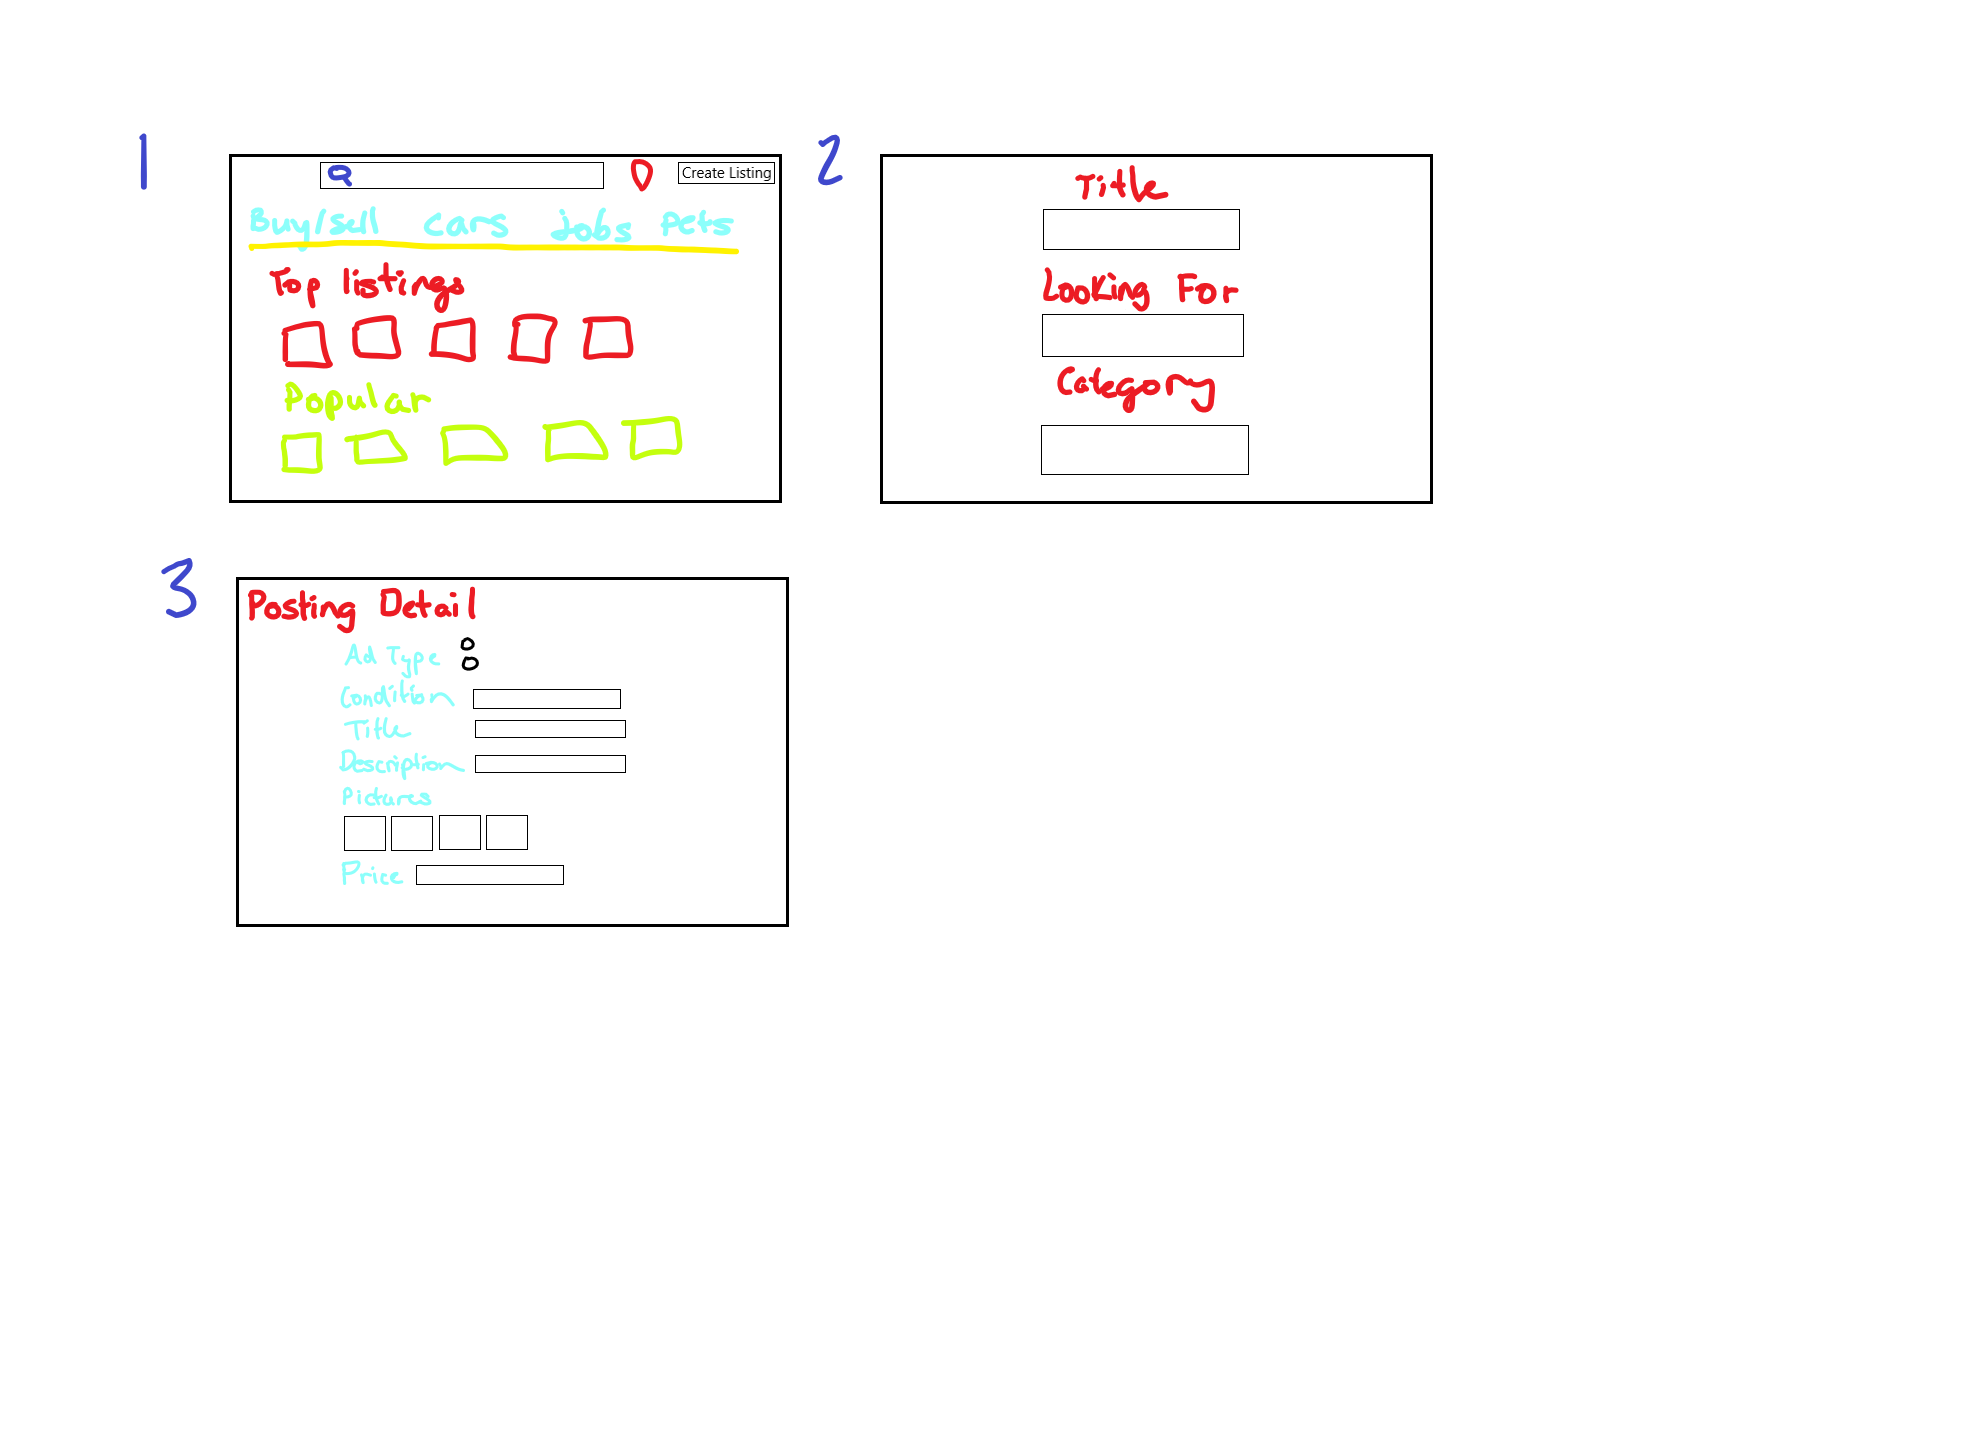 1
Create Listing
Buy/sell cars jobs Pets
Top listings
Popular
2
Title
Looking For
Category
3
Posting Detail
Ad Type
Condition
Title
Description
Pictures
Price